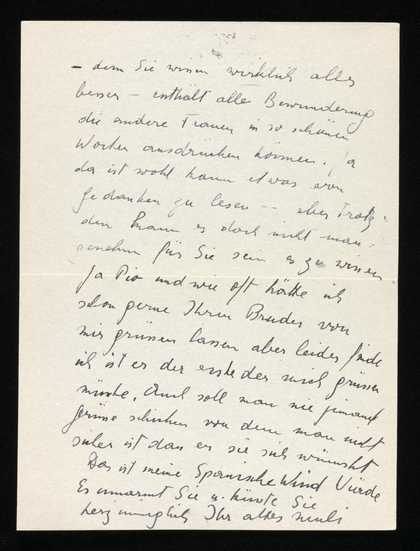 – denn Sie wissen wirklich alles
besser – enthält alle Bewunderung
die andere Frauen in so schönen
Worten ausdrücken können. Ja
da ist wohl kaum etwas von
Gedanken zu lesen – aber Trotz
dem kann es doch nicht
für Sie sein es zu wissen
Ja Pio und wie oft hätte ich
schon gerne Ihren Bruder von
mir grüssen lassen aber leider finde
ich ist er der erste der mich grüssen
müsste. Auch soll man nie jemand
Grüsse schicken von dem man nicht
sicher ist das er sie sich wünscht
Das ist meine Spanische Würde
Es umarmt Sie u. küsst Sie
herzinniglich Ihr altes